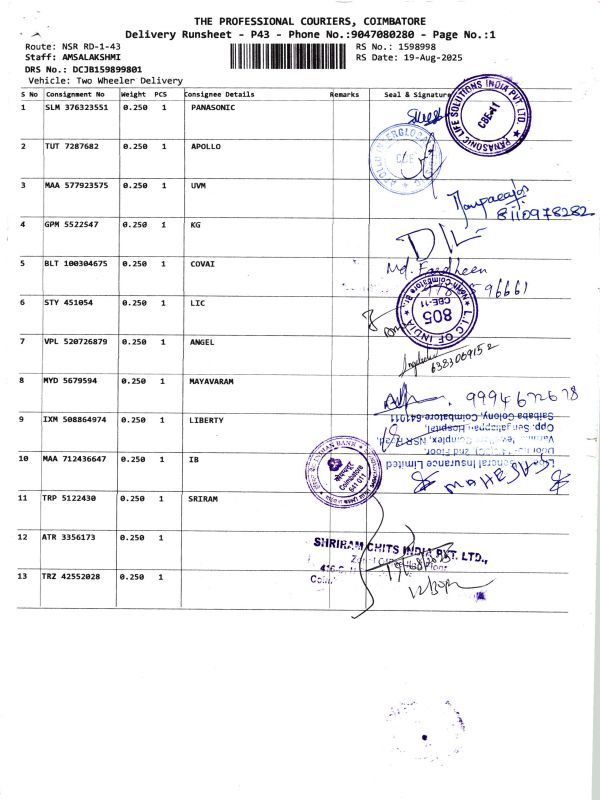 THE PROFESSIONAL COURIERS, COIMBATORE
Delivery Runsheet - P43 - Phone No.:9047080280 - Page No.:1
Route: NSR RD-1-43
RS No.: 1598998
Staff: AMSALAKSHMI
RS Date: 19-Aug-2025
DRS No.: DCJB159899801
Vehicle: Two Wheeler Delivery
S No Consignment No Weight PCS Consignee Details Remarks Seal & Signature
1 SLM 376323551 0.250 1 PANASONIC
PANASONIC LIFE SOLUTIONS INDIA PVT LTD.
CBE-11
2 TUT 7287682 0.250 1 APOLLO
APOLLO
CBE
3 MAA 577923575 0.250 1 UVM
8110978282
4 GPM 5522547 0.250 1 KG
5 BLT 100304675 0.250 1 COVAI
Md. Fardheen
96661
6 STY 451054 0.250 1 LIC
L.I.C OF INDIA
North Coimbatore Br.
805
CBE-11
7 VPL 520726879 0.250 1 ANGEL
6383069152
8 MYD 5679594 0.250 1 MAYAVARAM
9994672678
9 IXM 508864974 0.250 1 LIBERTY
General Insurance Limited
2nd Floor,
Complex, NSR Road,
Opp. Sengaliappa Hospital,
Saibaba Colony, Coimbatore-641011
10 MAA 712436647 0.250 1 IB
INDIAN BANK
Coimbatore
641 011
11 TRP 5122430 0.250 1 SRIRAM
12 ATR 3356173 0.250 1
SHRIRAM CHITS INDIA PVT. LTD.,
13 TRZ 42552028 0.250 1